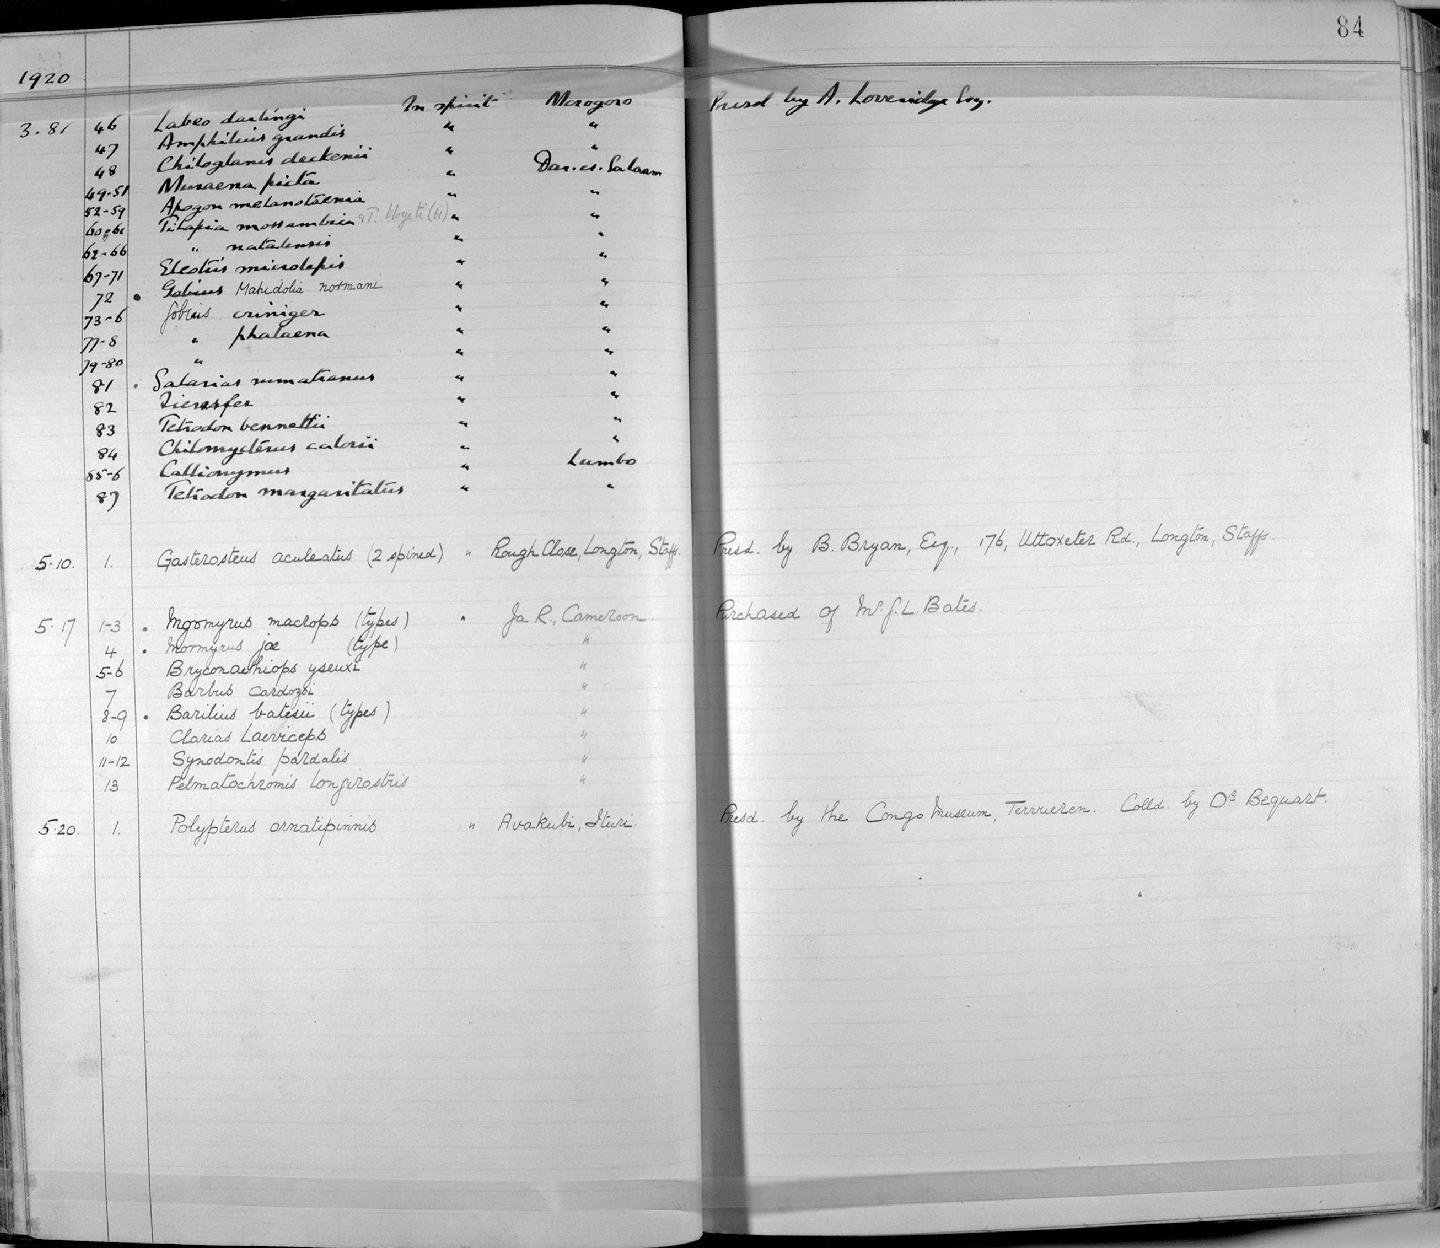 84
1920
3.81 46 Labeo darlingi In spirit Morogoro Presd by A. Loveridge Esq.
47 Amphilius grandis " "
48 Chiloglanis deckenii " "
49-51 Muraena picta " Dar-es-Salaam
52-59 Apogon melanotaenia " "
60-61 Tilapia mossambica " "
62-66 " natalensis " "
67-71 Eleotris microlepis " "
72 Gobius Mahidolia normani " "
73-6 Gobius criniger " "
77-8 " phalaena " "
79-80 " " "
81 Salarias sumatranus " "
82 Fierasfer " "
83 Tetrodon bennettii " "
84 Chilomycterus calorii " "
85-6 Callionymus " Lumbo
87 Tetrodon margaritatus " "
5.10. 1. Gasterosteus aculeatus (2 spined) " Rough Close, Longton, Staffs. Presd. by B. Bryan, Esq., 176, Uttoxeter Rd., Longton, Staffs.
5.17 1-3 Mormyrus macrops (types) " Ja R., Cameroon Purchased of Mr. G. L. Bates.
4 Mormyrus jae (type) "
5-6 Bryconaethiops yseuxi "
7 Barbus cardozoi "
8-9 Barilius batesii (types) "
10 Clarias Laeviceps "
11-12 Synodontis pardalis "
13 Pelmatochromis Longirostris "
5.20. 1. Polypterus ornatipinnis " Avakubi, Ituri Presd. by the Congo Museum, Tervueren. Colld. by Dr Bequart.